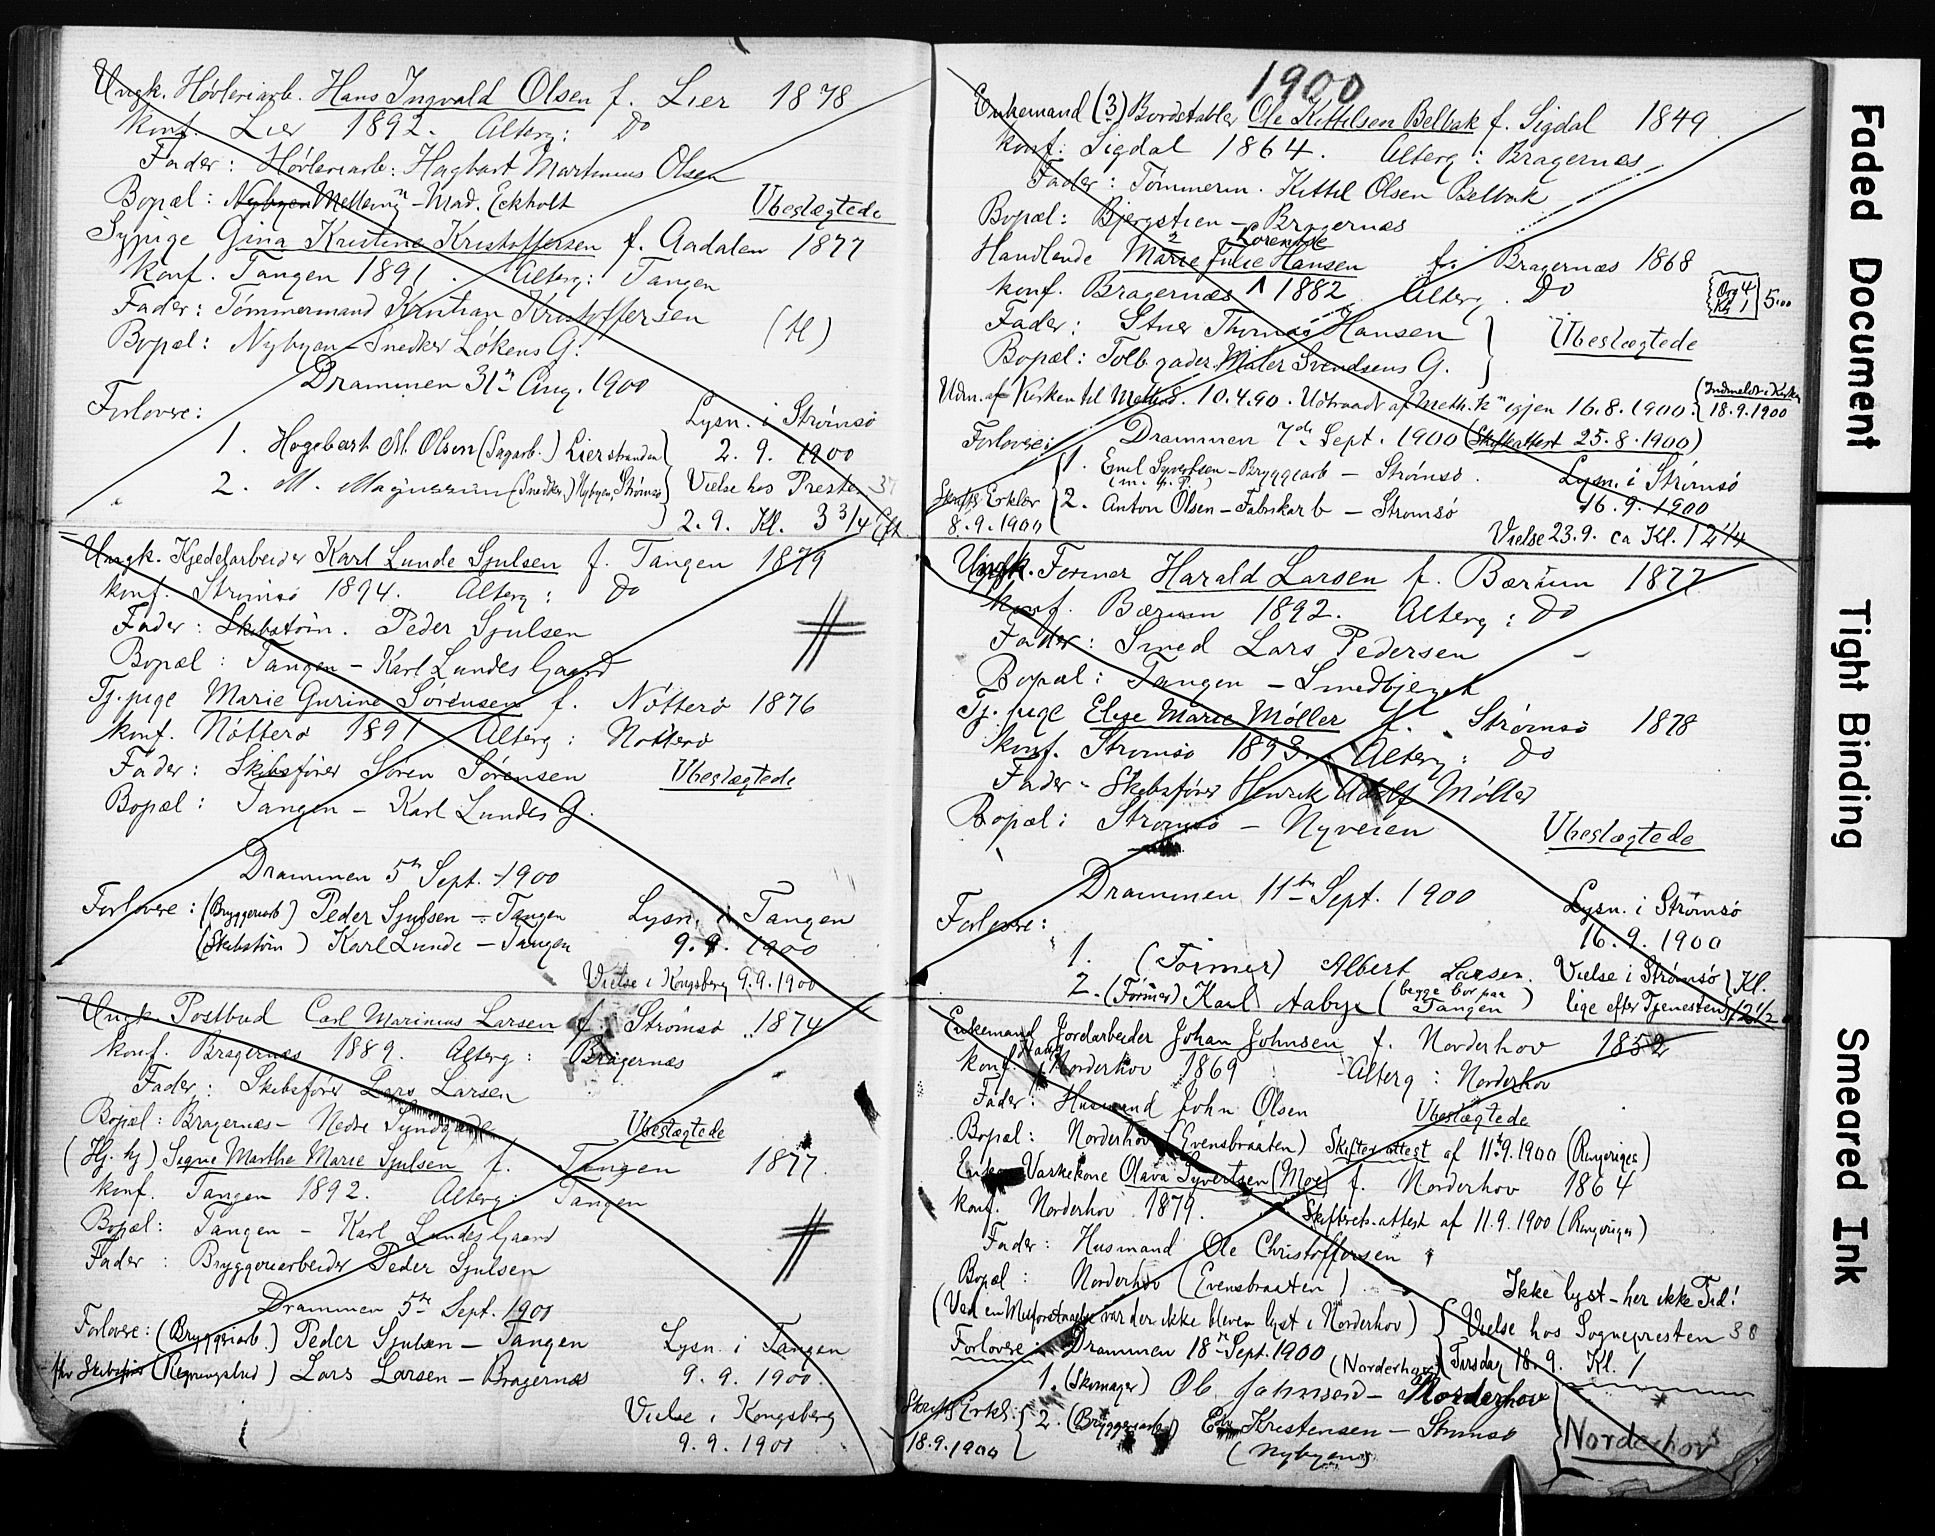 Ungk. Høvleriarb. Hans Ingvald Olsen f. Lier 1878
konf. Lier 1892. Alterg: Do
Fader: Høvleriarb: Hagbart Martinius Olsen
Bopæl: Nybyen Mad. Eckholt
Ubeslægtede
Sypige Gina Kristine Kristoffersen f. Aadalen 1877
konf. Tangen 1891. Alterg: Tangen
Fader: Tømmermand Kristian Kristoffersen
Bopæl: Nybyen – Snedker Løkens G.
Drammen 31te Aug. 1900
Forlovere:
Lysn. i Strømsø
1. Hagebart M. Olsen (Sagarb.) Lierstranden
2. 9. 1900
2. M. Magnussen (Snedker) Nybyen, Strømsø
Vielse hos Presten
2.9. Kl. 3 3/4 Eft.
Ungk. Kjedelarbeider Karl Lunde Sjulsen f. Tangen 1879
konf. Strømsø 1894. Alterg: Do
Fader: Skibstøm. Peder Sjulsen
Bopæl: Tangen – Karl Lundes Gaard
Tj. pige Marie Gurine Sørensen f. Nøtterø 1876
konf. Nøtterø 1891 Alterg: Nøtterø
Fader: Skibsfører Søren Sørensen
Ubeslægtede
Bopæl: Tangen – Karl Lundes G.
Drammen 5te Sept. 1900
Forlovere: (Bryggeriarb) Peder Sjulsen – Tangen
Lysn. i Tangen
(Skibstøm) Karl Lunde – Tangen
9. 9. 1900
Vielse i Kongsberg 9.9.1900
Ungk. Postbud Carl Marinius Larsen f. Strømsø 1874
konf. Bragernæs 1889. Alterg: Bragernæs
Fader: Skibsfører Lars Larsen
Bopæl: Bragernæs – Nedre
Ubeslægtede
(Hj. hj) Signe Marthe Marie Sjulsen f. Tangen 1877.
konf. Tangen 1892. Alterg: Tangen
Bopæl: Tangen – Karl Lundes Gaard
Fader: Bryggeriarbeider Peder Sjulsen
Drammen 5te Sept. 1900
Forlovere: (Bryggeriarb.) Peder Sjulsen – Tangen
Lysn. i Tangen
Lars Larsen – Bragernæs
9. 9. 1900.
Vielse i Kongsberg
9.9.1900
1900
Enkemand (3) Bordstabler Ole Kittilsen Belbak f. Sigdal 1849
konf: Sigdal 1864. Alterg: Bragernæs
Fader: Tømmerm. Kittil Olsen Belbak
Bopæl: Bjergstien – Bragernæs
Lorentse
Handlende Marie Julie Hansen f. Bragernæs 1868
konf. Bragernæs 1882 Alterg. Do
Org 4
Kl 1
5.00
Fader: Stuer Thomas Hansen
Ubeslægtede
Bopæl: Tolbgaden Maler Svendsens G.
Udm. af Kirken til Method. 10.4.90. Udtraadt af Meth. K igjen 16.8.1900.
(Indmeldt i Kirken 18.9.1900
Forlovere: Drammen 7de Sept. 1900 (Skifteattest 25.8.1900)
1. Emil Syvertsen – Bryggearb – Strømsø.
Lysn. i Strømsø
(m. p. P.)
Skriftl. Erklær 8.9.1900
2. Anton Olsen – Fabrikarb – Strømsø
16.9.1900
Vielse 23.9. ca Kl. 12 1/4
Ungk. Former Harald Larsen f. Bærum 1877
Konf. Bærum 1892. Alterg: Do
Fader: Smed Lars Pedersen
Bopæl: Tangen – Smedbjerget
Tj. pige Elise Marie Møller f. Strømsø 1878
konf. Strømsø 1893. Alterg: Do
Fader – Skibsfører Henrik Adolf Møller
Bopæl: Strømsø – Nyveien
Ubeslægtede
Drammen 11te Sept. 1900
Lysn. i Strømsø
Forlovere:
16. 9. 1900
1. (Former) Albert Larsen.
Vielse i Strømsø Kl.
2. (Former) Karl Aabye (begge bor paa Tangen)
lige efter Tjenesten 12 1/2
Enkemand Jordarbeider Johan Johnsen f. Norderhov 1852
konf. Norderhov 1869 Alterg: Norderhov
Fader: Husmand John Olsen
Ubeslægtede
Bopæl: Norderhov (Evensbraaten) Skifteattest af 11.9.1900 (Ringerige)
Enke Vaskekone Olava Syvertsen (Moe) f. Norderhov 1864
konf. Norderhov 1879.
Skifterets-attest af 11.9.1900 (Ringerige)
Fader: Husmand Ole Christoffersen
Bopæl: Norderhov (Evensbraaten).
Ikke lyst – her ikke Tid!
(Ved en Misforstaaelse var der ikke bleven lyst i Norderhov)
Vielse hos Sognepresten 38
Forlovere: Drammen 18te Sept. 1900
Tirsdag 18.9. Kl. 1
(Norderhov)
1. (Skomager) Ole Johnsen – Norderhov
Skriftl. Erkl: 18.9.1900
2. (Bryggeriarb) Edv Kristensen – Strømsø
(Nybyen)
Norderhov
Faded Document
Tight Binding
Smeared Ink